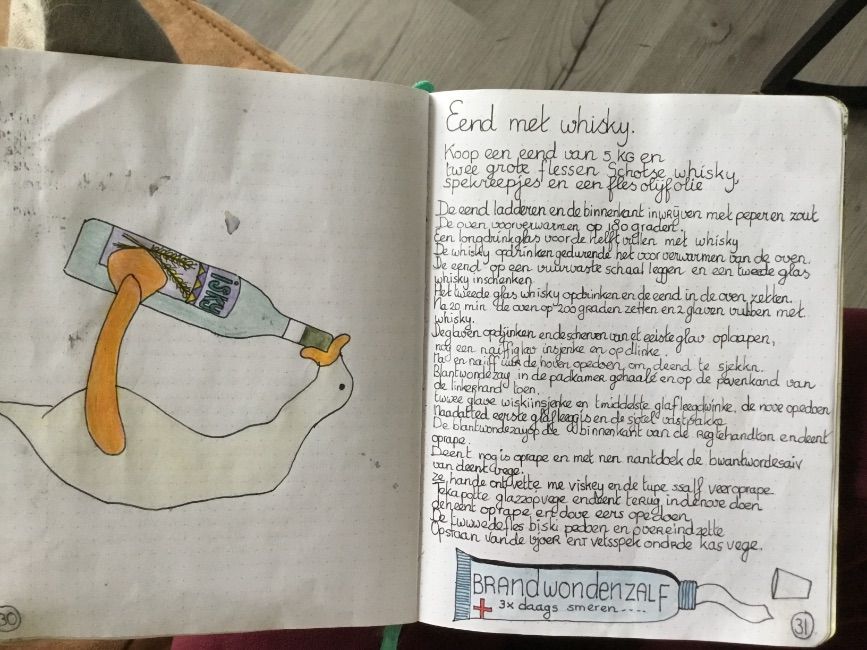 iSKY
30
Eend met whisky.
Koop een eend van 5 KG en
twee grote flessen Schotse whisky,
spekreepjes en een fles olijfolie
De eend ladderen en de binnenkant inwrijven met peper en zout
De oven voorverwarmen op 180 graden.
Een longdrinkglas voor de helft vullen met whisky
De whisky opdrinken gedurende het voorverwarmen van de oven.
De eend op een vuurvaste schaal leggen en een tweede glas
whisky inschenken.
Het tweede glas whisky opdrinken en de eend in de oven zetten.
Na 20 min de oven op 200 graden zetten en 2 glaven vubben met
whisky.
De glaven opdjinken en de scherven van et eeiste glav oplaapen,
nog een naiffiglav insjenke en opdlinke.
en naiff uur de hoven opedoen, om deend te sjekkn.
Blantwondezav in de padkamer gehaale en op de povenkand van
de linkerhand toen.
twwee glave wiskiinsjenke en tmiddelste glaf leegdwinke. de nove opedoen
nadatted eerste glaf leeg is en de sjotel vastpakke
De blantwondezavop die binnenkant van de regtehandton en deent
oprape.
Deent nog is oprape en met nen nantdoek de bwantwordesaiv
van deent vege.
ze hande ontvette me viskey en de tupe ssalf veeroprape
kapotte glazzopvege en deent terug in denove doen
deneent oprape en dove eers opedoen
De twwwedefles biski
Opstaan van de vjoer ent vetsspek ondrde kas vege.
BRANDwondenZALF
3x daags smeren....
31